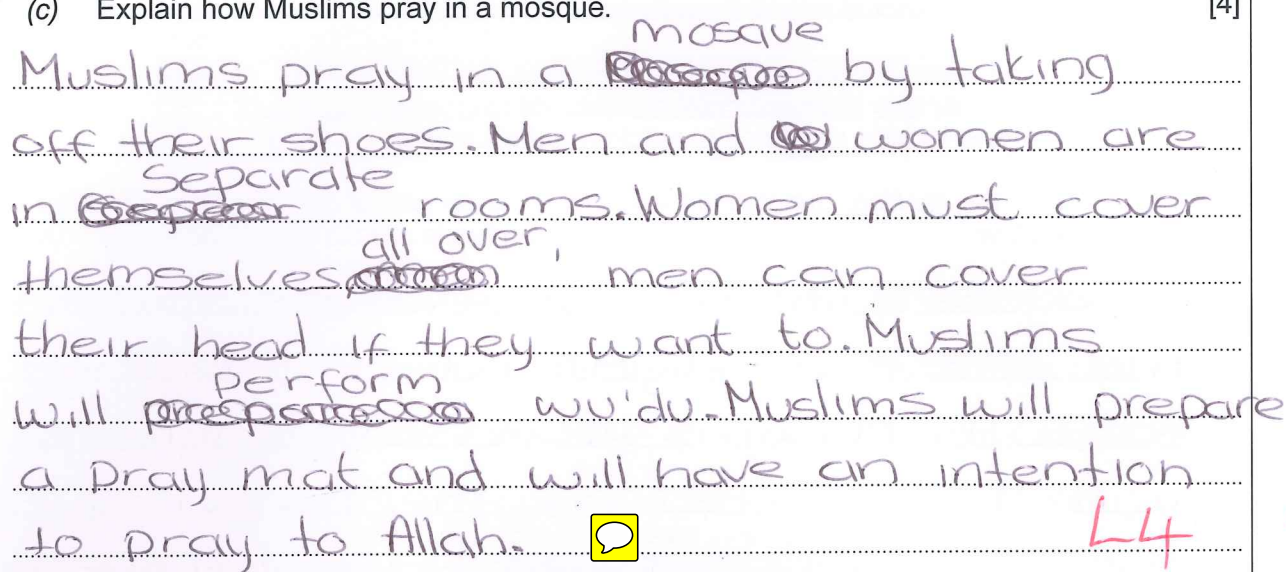 (c) Explain how Muslims pray in a mosque. [4]
Muslims pray in a mosque by taking
off their shoes. Men and women are
in Separate rooms. Women must cover
themselves all over, men can cover
their head if they want to. Muslims
will perform wu'du. Muslims will prepare
a pray mat and will have an intention
to pray to Allah. L4